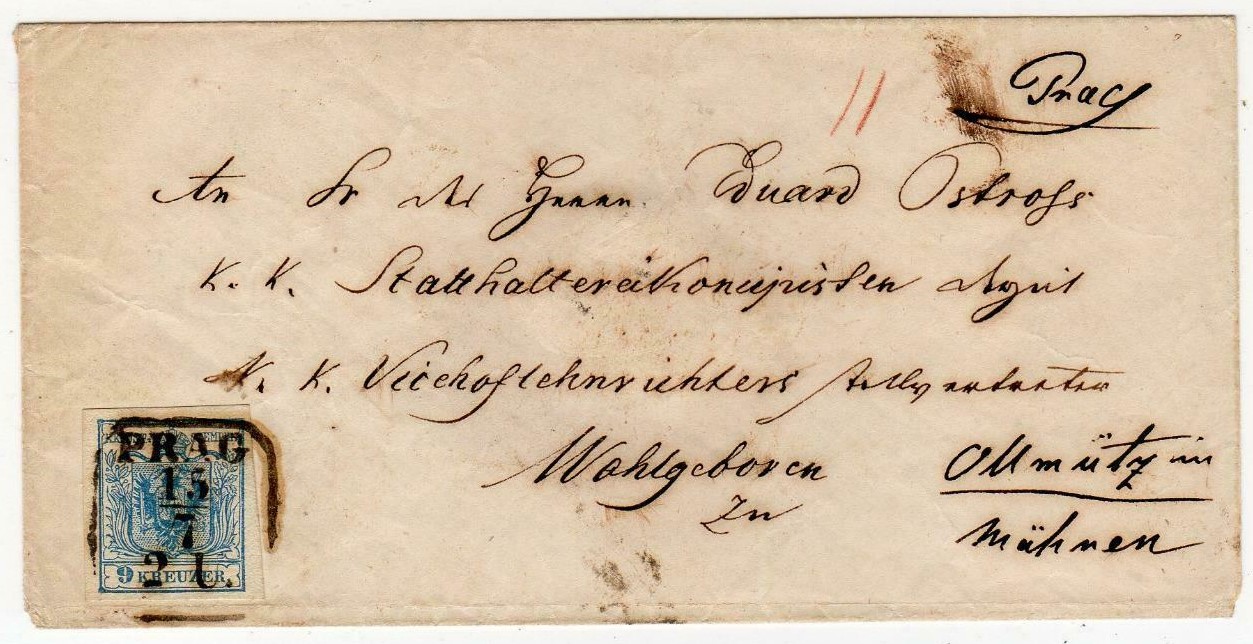 Prag
An Sr des Herrn Eduard Ostross
K. K. Stattthaltereikonzipisten
K. K. Vicehoflehnrichters stellvertreter
Wohlgeboren
Zu
Ollmütz in
Mähren
PRAG
15
7
2 U.
9 KREUZER.